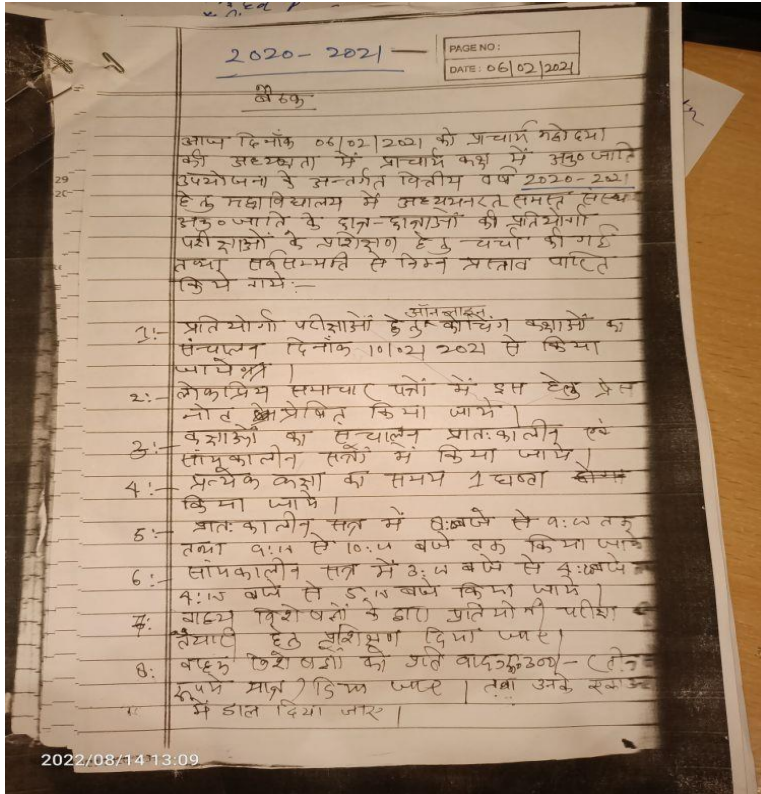 2020-2021 —
PAGE NO:
DATE: 06/02/2021
बैठक
आज दिनाँक 06/02/2021 को प्राचार्य महोदया
की अध्यक्षता में प्राचार्य कक्ष में अनु० जाति
उपयोजना के अन्तर्गत वित्तीय वर्ष 2020-2021
हेतु महाविद्यालय में अध्ययनरत समस्त
अनु० जाति के छात्र-छात्राओं की प्रतियोगी
परीक्षाओं के प्रशिक्षण हेतु चर्चा की गई
तथा सर्वसम्मति से निम्न प्रस्ताव पारित
किये गये:-
ऑनलाइन
1:- प्रतियोगी परीक्षाओं हेतु कोचिंग कक्षाओं का
संचालन दिनाँक 10/02/2021 से किया
जाये।
2:- लोकप्रिय समाचार पत्रों में इस हेतु प्रेस
नोट प्रेषित किया जाये।
3:- कक्षाओं का संचालन प्रातःकालीन एवं
सांयकालीन सत्रों में किया जाये।
4:- प्रत्येक कक्षा का समय 1 घण्टा
किया जाये।
5:- प्रातः कालीन सत्र में 8: बजे से 9: तक
तथा 9:15 से 10: बजे तक किया जाये
6:- सांयकालीन सत्र में 3: बजे से 4: बजे
4:15 बजे से 5:15 बजे किया जाये।
7:- बाह्य विशेषज्ञों के द्वारा प्रतियोगी परीक्षा
तैयारी हेतु प्रशिक्षण दिया जाए।
8:- बाह्य विशेषज्ञों को प्रति (तीन
रूपये मात्र) दिया जाए। तथा उनके
में डाल दिया जाए।
2022/08/14 13:09